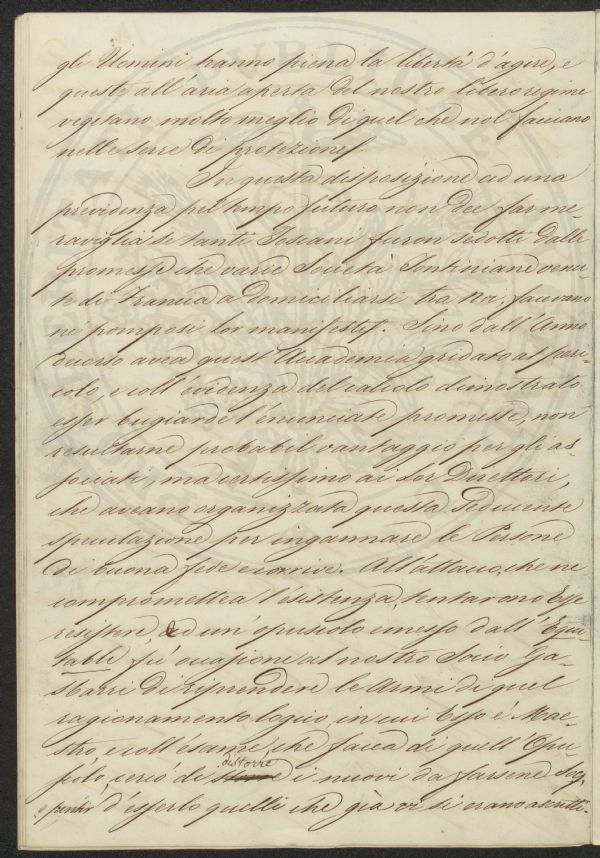 gli Uomini hanno piena la libertà d'agire, e
queste all'aria aperta del nostro libero regime
vegetano molto meglio di quel che nol facciano
nelle serre di protezione.
In questa disposizione ad una
previdenza pel tempo futuro non dee far me-
raviglia se tanti Toscani furon sedotti dalle
promesse che varie Società Tontiniane venu-
te di Francia a domiciliarsi tra noi, facevano
ne' pomposi lor manifesti. Sino dall'Anno
decorso avea quest'Accademia gridato al peri-
colo, e coll'evidenza del calcolo dimostrato
esser bugiarde l'enunciate promesse, non
resultarne probabil vantaggio per gli as-
sociati, ma certissimo ai lor Direttori,
che aveano organizzata questa seducente
speculazione per ingannare le Persone
di buona fede e corrive. All'attacco, che ne
comprometteva l'esistenza, tentarono Esse
resistere, ed un'opuscolo emesso dall'Equi-
table fu occasione al nostro Socio Ga-
sbarri di riprendere le Armi di quel
ragionamento logico, in cui Esso è Mae-
stro, e coll'esame, che facea di quell'Opu-
scolo, cercò di distorre i nuovi da farsene Sog,
d'esserlo quelli che già vi si erano ascritti.